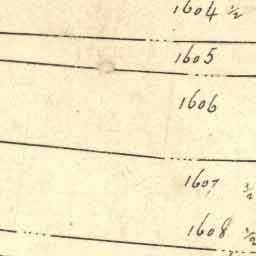 1604 ½
1605
1606
1607 ½
1608 ½